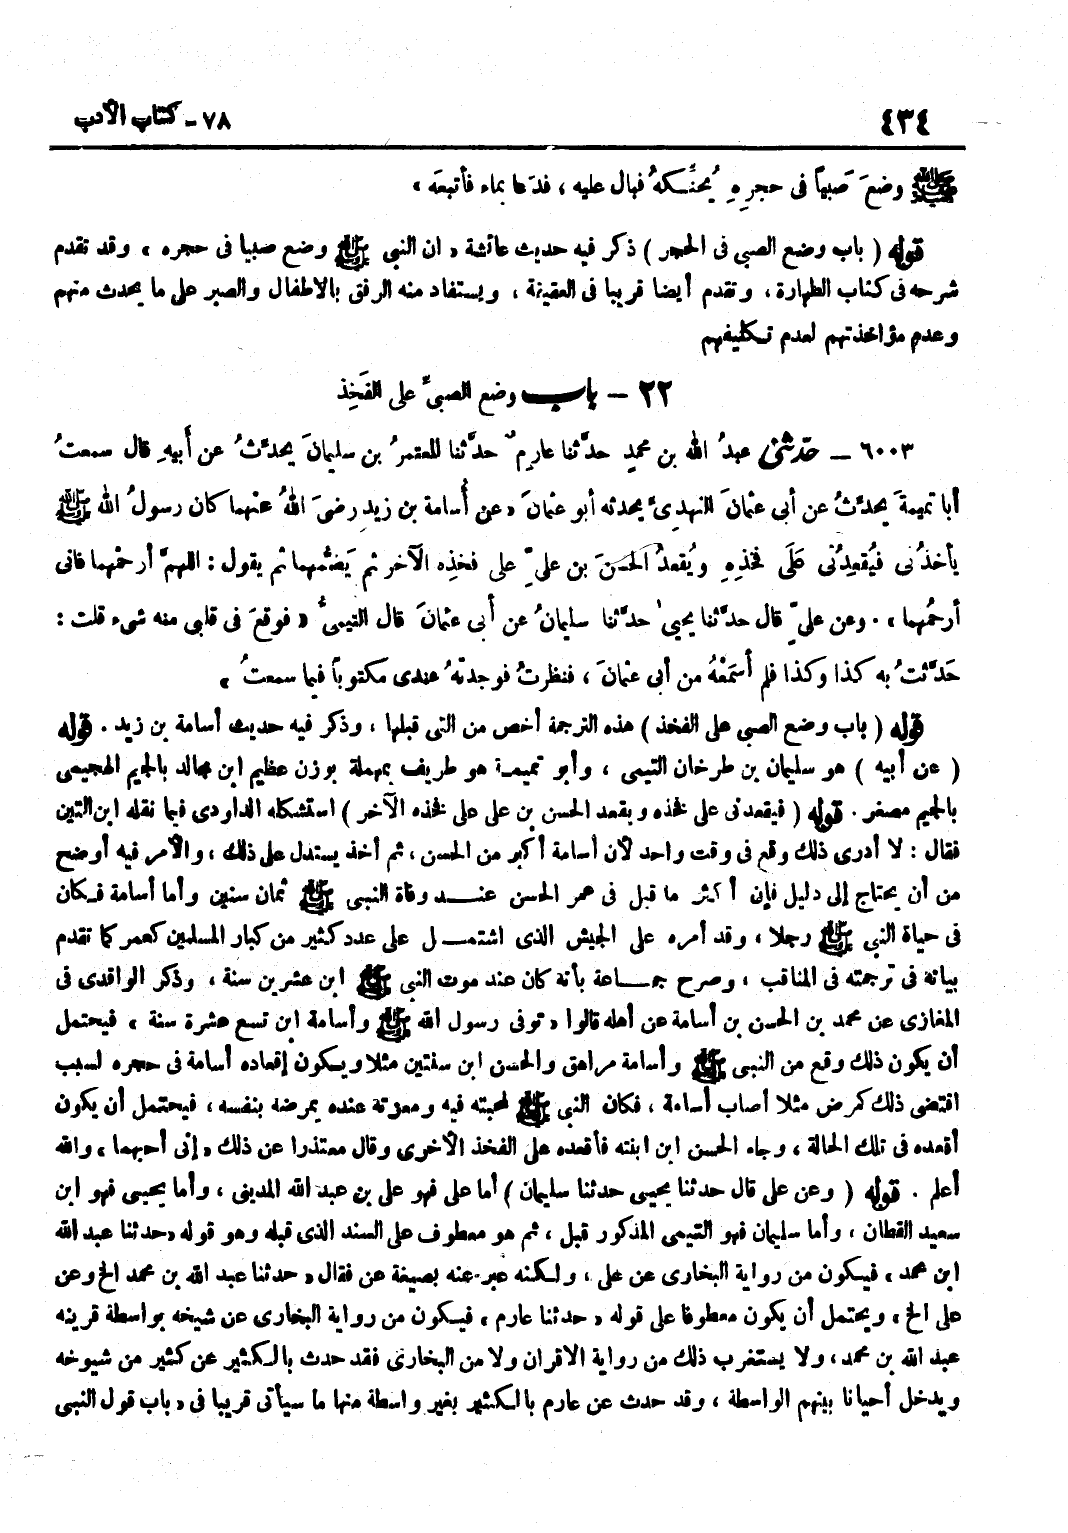 ٤٣٤ ٧٨ - كتاب الأدب
ﷺ وضعَ صبياً فى حجرِهِ يُحنِّكهُ فبال عليه ، فدَعا بماء فأتبعَه »
قوله ( باب وضع الصبى فى الحجر ) ذكر فيه حديث عائشة « ان النبى ﷺ وضع صبيا فى حجره » وقد تقدم
شرحه فى كتاب الطهارة ، وتقدم أيضا قريبا فى العقيقة ، ويستفاد منه الرفق بالاطفال والصبر على ما يحدث منهم
وعدم مؤاخذتهم لعدم تكليفهم
٢٢ - باب وضع الصبىِّ على الفَخِذ
٦٠٠٣ - حدّثنى عبدُ الله بن محمدٍ حدَّثنا عارِمٌ حدَّثنا المعتمرُ بن سليمانَ يحدِّثُ عن أبيهِ قال سمعتُ
أبا تميمةَ يحدِّثُ عن أبى عثمانَ النهدىِّ يحدثه أبو عثمانَ « عن أُسامة بن زيدٍ رضىَ اللهُ عنهما كان رسولُ الله ﷺ
يأخذُنى فيُقعِدُنى عَلَى فخذِهِ ويُقعدُ الحسنَ بن علىٍّ على فخذِه الآخر ثم يَضمُّهما ثم يقول : اللهمَّ أرحمْهما فانى
أرحمُهما » . وعن علىٍّ قال حدَّثنا يحيىٰ حدَّثنا سليمانُ عن أبى عثمانَ قال التيمىُّ « فوقعَ فى قلبى منه شىء قلت :
حَدَّثتُ به كذا وكذا فلم أسمَعْهُ من أبى عثمانَ ، فنظرتُ فوجدتهُ عندى مكتوباً فيما سمعتُ »
قوله ( باب وضع الصبى على الفخذ ) هذه الترجمة أخص من التى قبلها ، وذكر فيه حديث أسامة بن زيد . قوله
( عن أبيه ) هو سليمان بن طرخان التيمى ، وأبو تميمة هو طريف بمهملة بوزن عظيم ابن مجالد بالجيم الهجيمى
بالجيم مصغر . قوله ( فيقعدنى على فخذه ويقعد الحسن بن على على فخذه الآخر ) استشكله الداودى فيما نقله ابن التين
فقال : لا أدرى ذلك وقع فى وقت واحد لأن أسامة أكبر من الحسن ، ثم أخذ يستدل على ذلك ، والأمر فيه أوضح
من أن يحتاج إلى دليل فإن أكثر ما قيل فى عمر الحسن عند وفاة النبى ﷺ ثمان سنين وأما أسامة فكان
فى حياة النبى ﷺ رجلا ، وقد أمره على الجيش الذى اشتمل على عدد كثير من كبار المسلمين كعمر كما تقدم
بيانه فى ترجمته فى المناقب ، وصرح جماعة بأنه كان عند موت النبى ﷺ ابن عشرين سنة ، وذكر الواقدى فى
المغازى عن محمد بن الحسن بن أسامة عن أهله قالوا « توفى رسول الله ﷺ وأسامة ابن تسع عشرة سنة » فيحتمل
أن يكون ذلك وقع من النبى ﷺ وأسامة مراهق والحسن ابن سنتين مثلا ويكون إقعاده أسامة فى حجره لسبب
اقتضى ذلك كمرض مثلا أصاب أسامة ، فكان النبى ﷺ لمحبته فيه ومعوته عنده يمرضه بنفسه ، فيحتمل أن يكون
أقعده فى تلك الحالة ، وجاء الحسن ابن ابنته فأقعده على الفخذ الأخرى وقال معتذرا عن ذلك « إنى أحبهما » والله
أعلم . قوله ( وعن على قال حدثنا يحيى حدثنا سليمان ) أما على فهو على بن عبد الله المدينى ، وأما يحيى فهو ابن
سعيد القطان ، وأما سليمان فهو التيمى المذكور قبل ، ثم هو معطوف على السند الذى قبله وهو قوله « حدثنا عبد الله
ابن محمد » فيكون من رواية البخارى عن على ، ولكنه عبر عنه بصيغة عن فقال « حدثنا عبد الله بن محمد الخ وعن
على الخ » ويحتمل أن يكون معطوفا على قوله « حدثنا عارم » فيكون من رواية البخارى عن شيخه بواسطة قرينه
عبد الله بن محمد ، ولا يستغرب ذلك من رواية الاقران ولا من البخارى فقد حدث بالكثير عن كثير من شيوخه
ويدخل أحيانا بينهم الواسطة ، وقد حدث عن عارم بالكثير بغير واسطة منها ما سيأتى قريبا فى « باب قول النبى